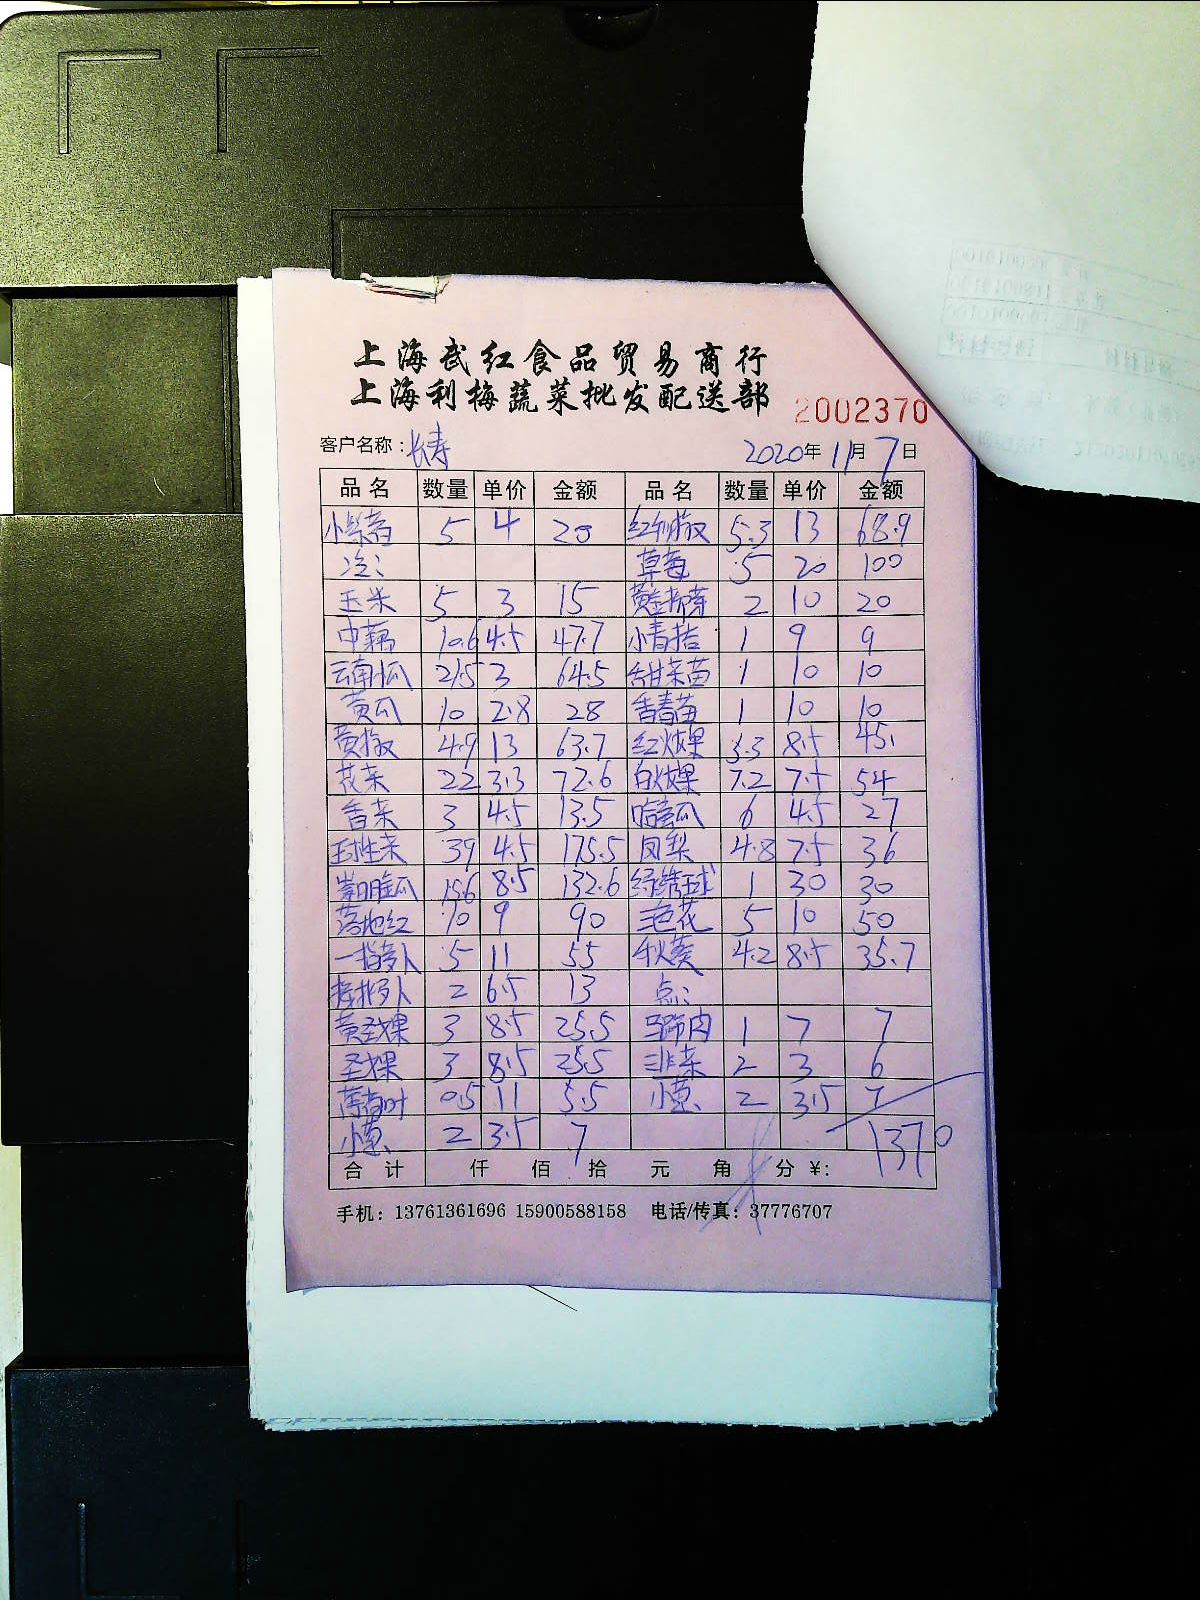 上海武红食品贸易商行
上海利梅蔬菜批发配送部
2002370
客户名称：长寿 2020年11月7日
品名 数量 单价 金额 品名 数量 单价 金额
小紫茄 5 4 20 红甜椒 5.3 13 68.9
冷： 草莓 5 20 100
玉米 5 3 15 2 10 20
中藕 10.6 4.5 47.7 小青桔 1 9 9
云南小瓜 21.5 3 64.5 甜菜苗 1 10 10
黄瓜 10 2.8 28 香春苗 1 10 10
黄椒 4.9 13 63.7 红火龙果 5.3 8.5 45.1
花菜 22 3.3 72.6 白火龙果 7.2 7.5 54
香菜 3 4.5 13.5 哈密瓜 6 4.5 27
球生菜 39 4.5 175.5 凤梨 4.8 7.5 36
崇明金瓜 15.6 8.5 132.6 绣球 1 30 30
落地红 10 9 90 花 5 10 50
一指萝卜 5 11 55 秋葵 4.2 8.5 35.7
萝卜 2 6.5 13 点：
黄圣女果 3 8.5 25.5 马蹄肉 1 7 7
圣女果 3 8.5 25.5 韭菜 2 3 6
薄荷叶 0.5 11 5.5 小葱 2 3.5 7
小葱 2 3.5 7
合计 仟 佰 拾 元 角 分 ¥: 1370
手机：13761361696 15900588158 电话/传真：37776707